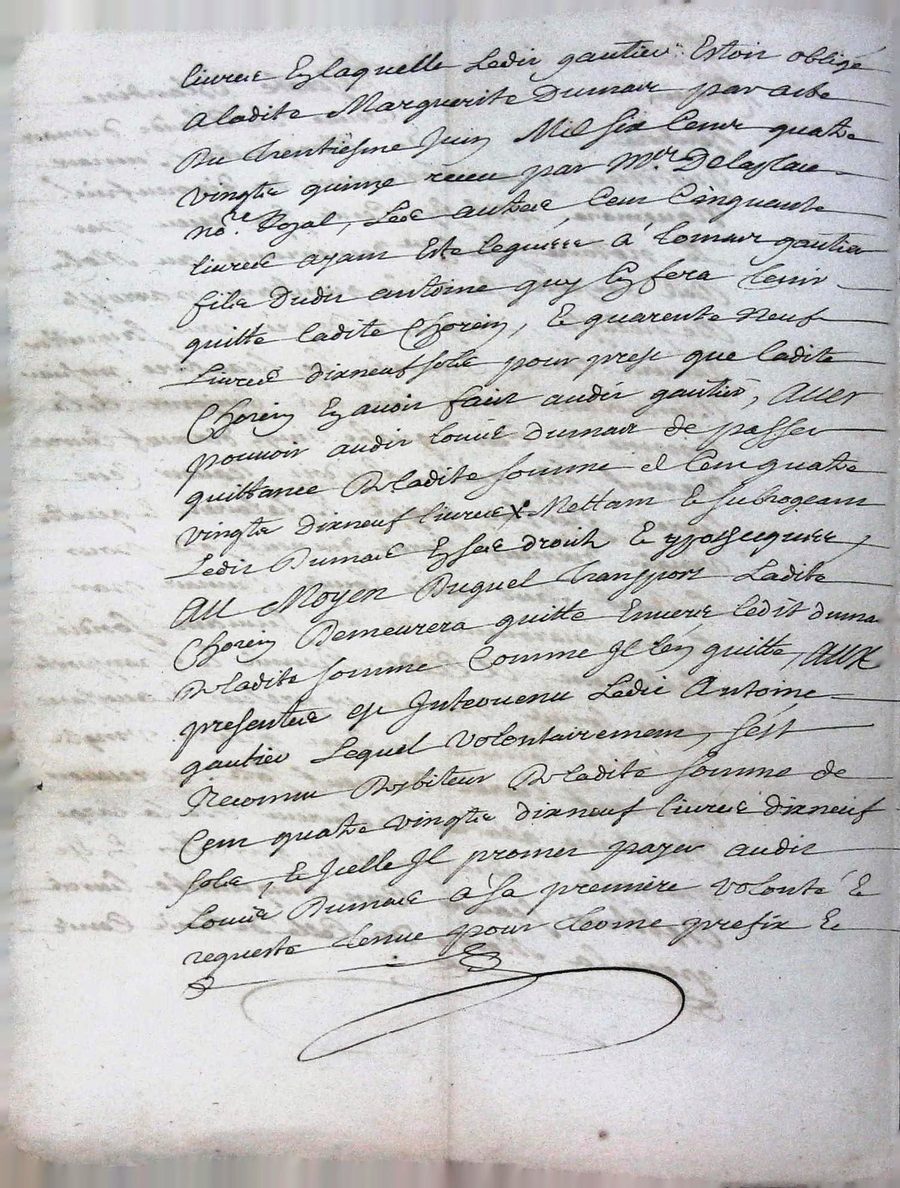 livres En laquelle Ledit gautier Estoit obligé
a ladite Marguerite Dumas, par acte
Du trentiesme Juin Mil six Cent quatre
vingts quinze receu par Mr. Delaplace
nore Royal, Les autres Cent Cinquante
livres ayant Este leguéés à tomas gautier
fils dudit antoine quy En fera tenir
quitte ladite Chorein, Et quarente neuf
Livres dixneuf sols pour prest que ladite
Chorein En avoir fait audit gautier, avec
pouvoir audit Louis Dumas de passer
quittance De ladite somme de Cent quatre
vingts dixneuf livres Mettant Et subrogeant
Ledit Dumas En ses droits Et yppotecques,
Au Moyen Duquel transport Ladite
Chorein Demeurera quitte Envers Ledit dumas
De ladite somme Comme Il l'en quitte, AUX
presentes est Intervenu Ledit Antoine
gautier Lequel volontairement, s'est
Reconnu Debiteur De ladite somme de
Cent quatre vingts dixneuf livres dixneuf
sols, Et Icelle Il promet payer audit
Louis Dumas à sa première volonté Et
requeste tenue pour terme prefix Et